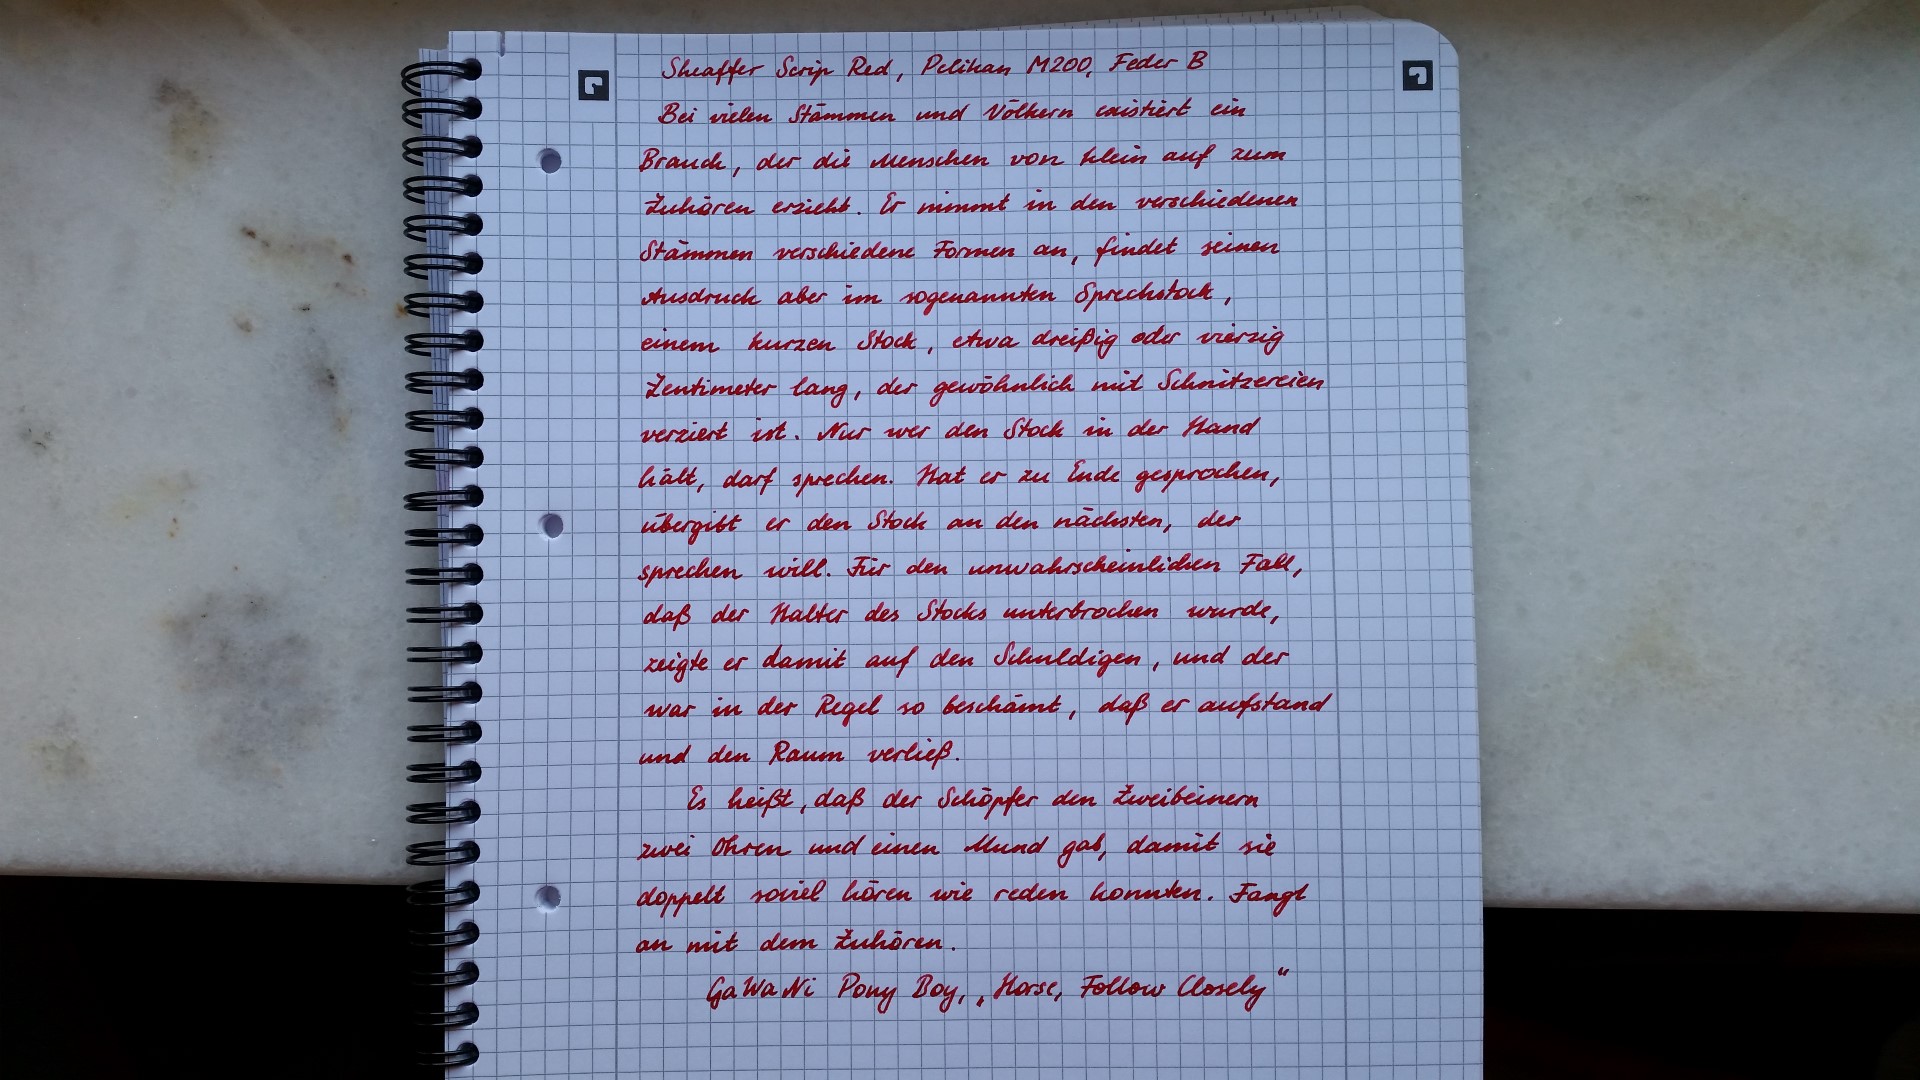 Sheaffer Scrip Red, Pelikan M200, Feder B
Bei vielen Stämmen und Völkern existiert ein
Brauch, der die Menschen von klein auf zum
Zuhören erzieht. Er nimmt in den verschiedenen
Stämmen verschiedene Formen an, findet seinen
Ausdruck aber im sogenannten Sprechstock,
einem kurzen Stock, etwa dreißig oder vierzig
Zentimeter lang, der gewöhnlich mit Schnitzereien
verziert ist. Nur wer den Stock in der Hand
hält, darf sprechen. Hat er zu Ende gesprochen,
übergibt er den Stock an den nächsten, der
sprechen will. Für den unwahrscheinlichen Fall,
daß der Halter des Stocks unterbrochen wurde,
zeigte er damit auf den Schuldigen, und der
war in der Regel so beschämt, daß er aufstand
und den Raum verließ.
Es heißt, daß der Schöpfer den Zweibeinern
zwei Ohren und einen Mund gab, damit sie
doppelt soviel hören wie reden konnten. Fangt
an mit dem Zuhören.
GaWaNi Pony Boy, „Horse, Follow Closely“